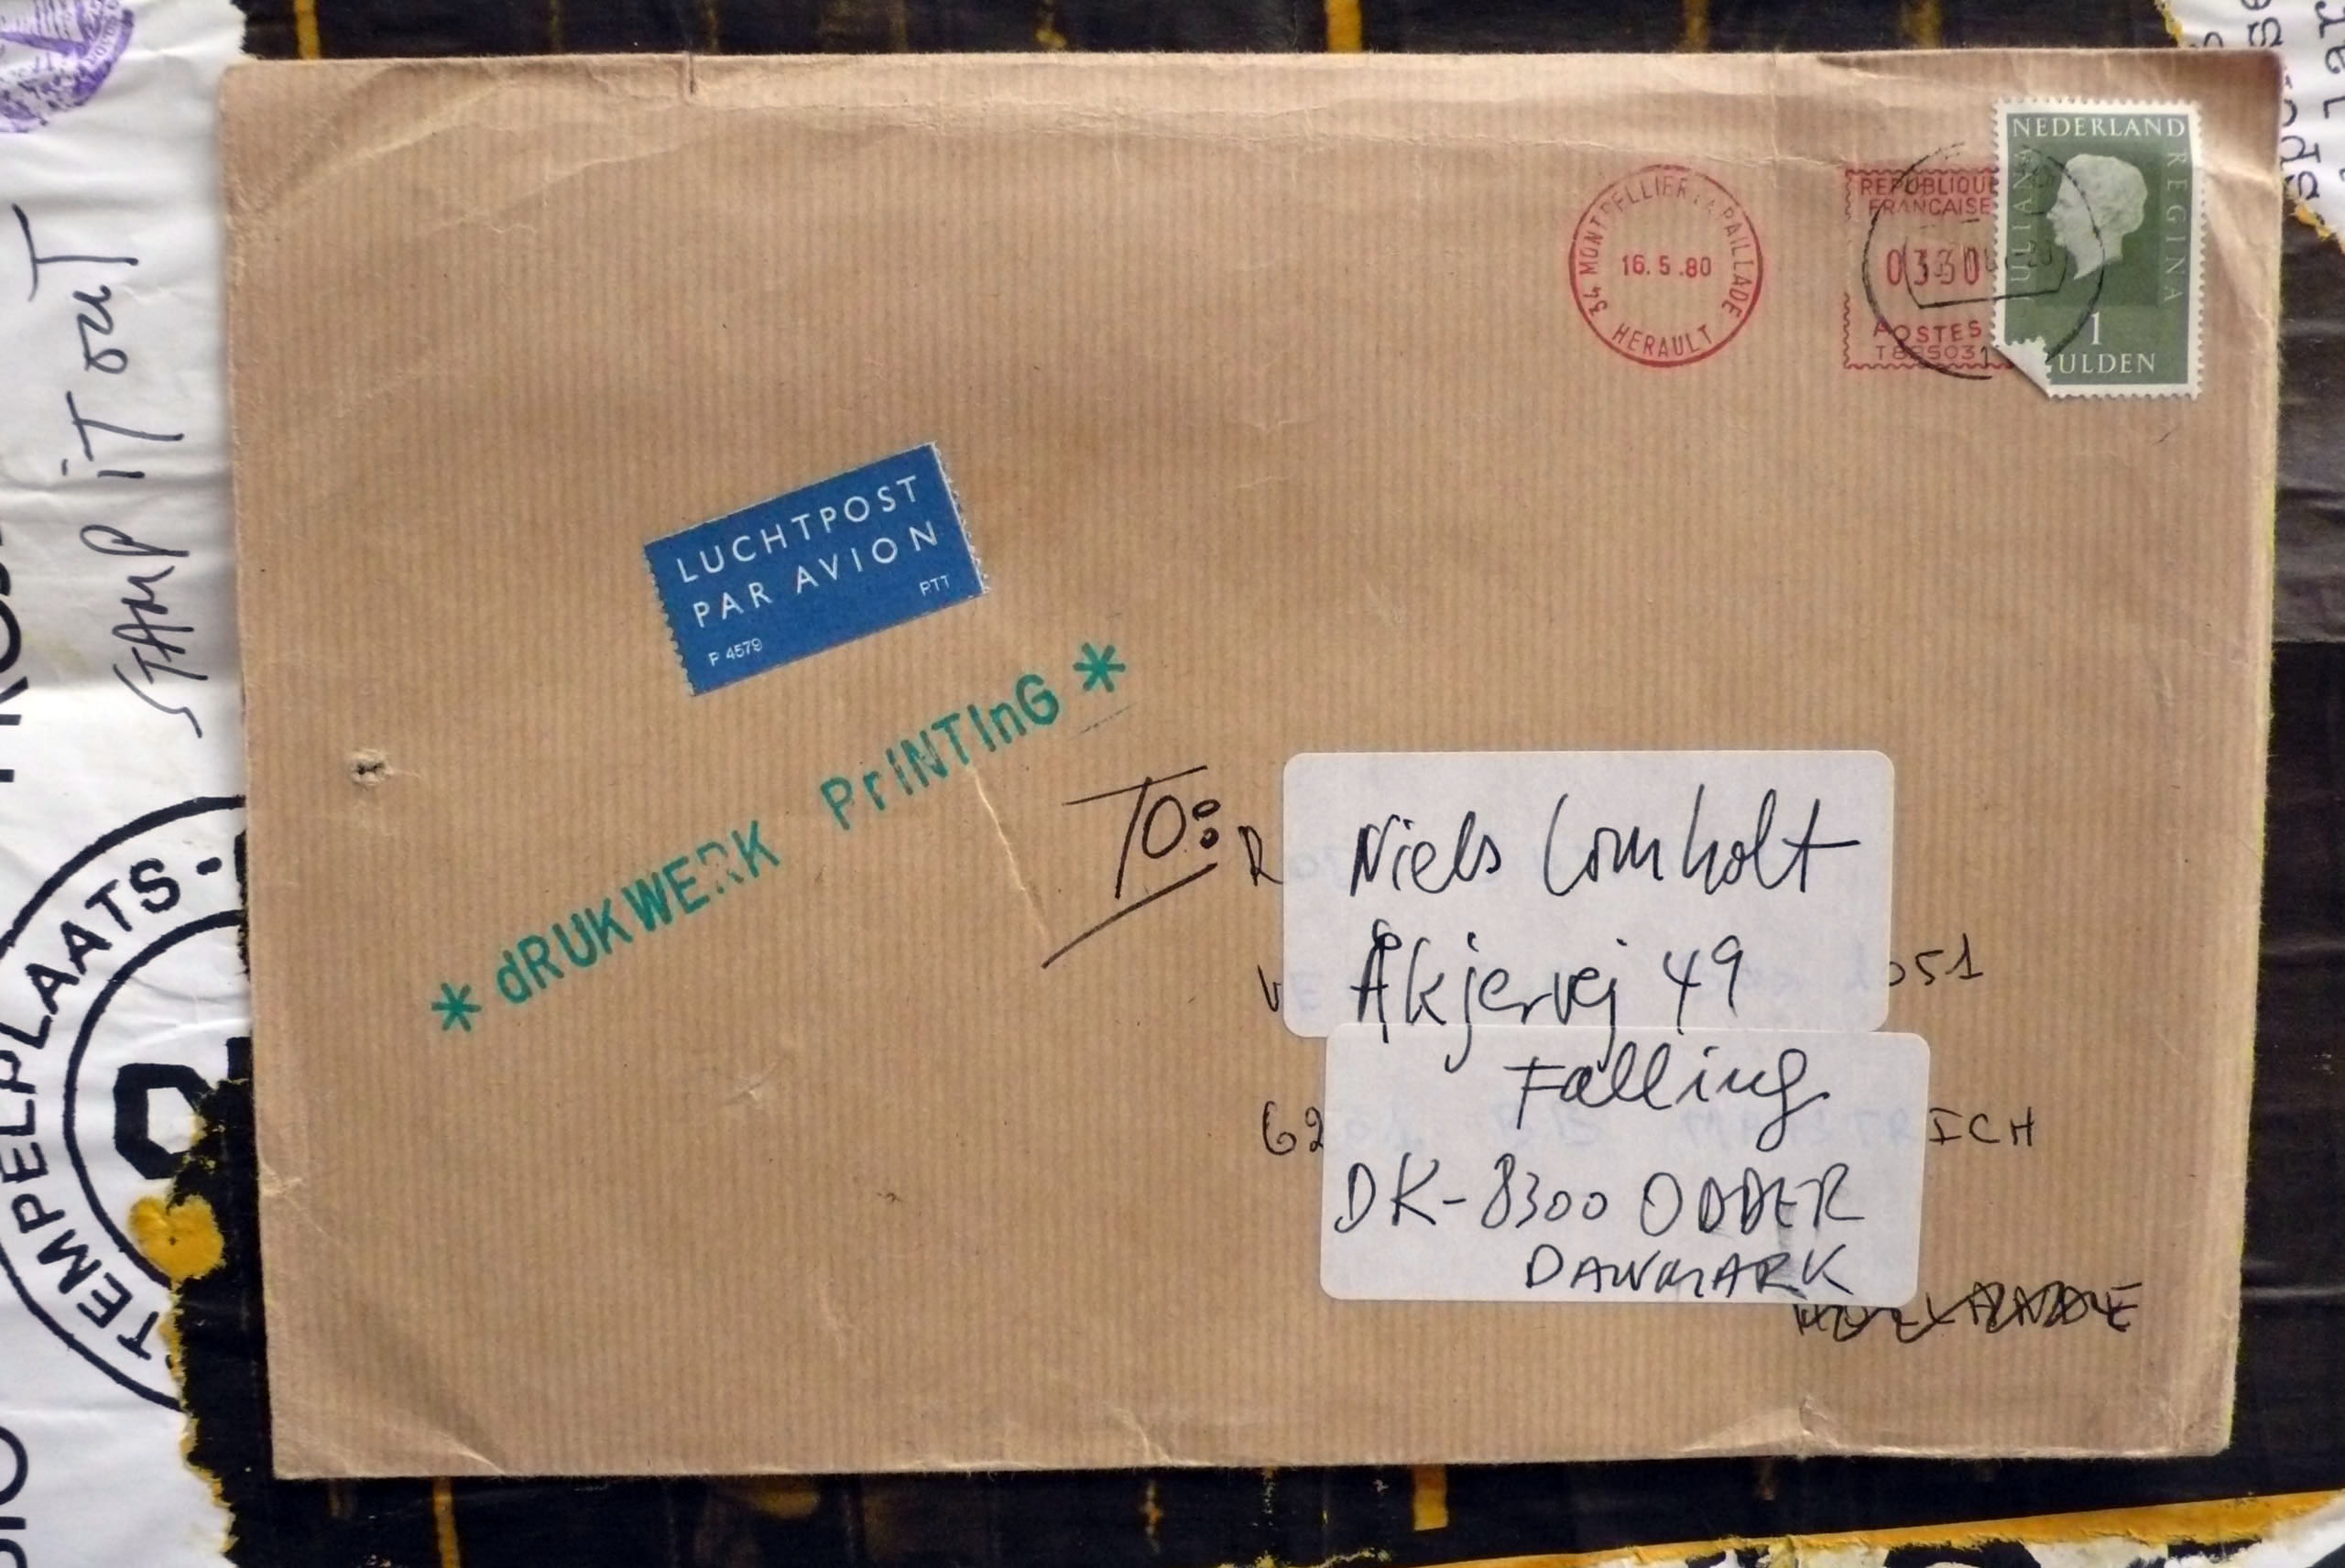 STAMP iT OUT
TEMPELPLAATS -
34 MONTPELLIER LA PAILLADE
16.5.80
HERAULT
REPUBLIQUE
FRANCAISE
0330
POSTES
NEDERLAND
JULIANA
REGINA
1
ULDEN
LUCHTPOST
PAR AVION
PTT
P 4579
* dRUKWERK PrINTInG *
TO: R
Niels Lomholt
Åkjervej 49
051
Falling
62
ICH
DK-8300 ODDER
DANMARK